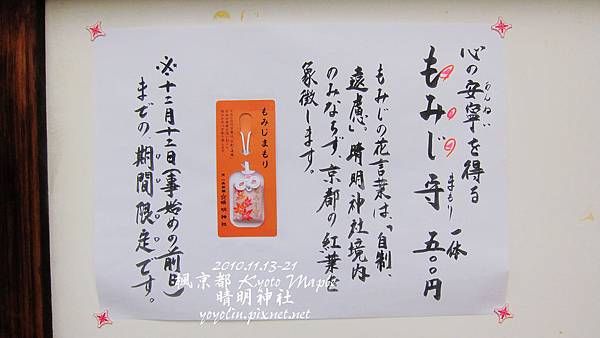 心の安寧を得る
あんねい
もみじ守 一体 五〇〇円
まもり
もみじの花言葉は、「自制、
遠慮」。晴明神社境内
のみならず、京都の紅葉を
象徴します。
もみじまもり
晴明神社
※十二月十二日(事始めの前日)
までの期間限定です。
2010.11.13-21
楓京都 Kyoto Maple
晴明神社
yoyolin.pixnet.net